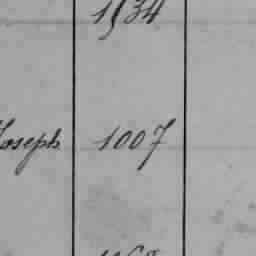 1534
Joseph 1007